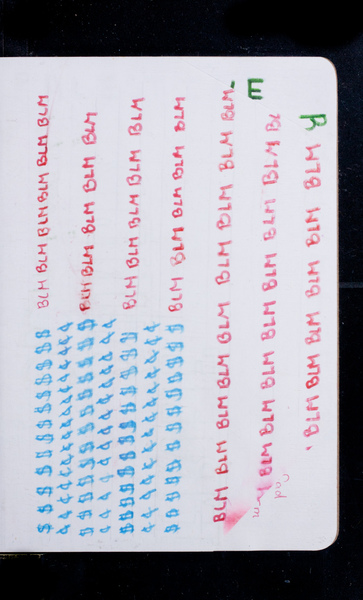 $ $ $ $ $ $ $ $ $ $ $ $ BLM BLM BLM BLM BLM BLM
¢ ¢ ¢ ¢ ¢ ¢ ¢ ¢ ¢ ¢ ¢ ¢
$ $ $ $ $ $ $ $ $ $ $ $ BLM BLM BLM BLM BLM
¢ ¢ ¢ ¢ ¢ ¢ ¢ ¢ ¢ ¢ ¢ ¢
$ $ $ $ $ $ $ $ $ $ $ BLM BLM BLM BLM BLM
¢ ¢ ¢ ¢ ¢ ¢ ¢ ¢ ¢ ¢ ¢ ¢
$ $ $ $ $ $ $ $ $ $ $ $ BLM BLM BLM BLM BLM
BLM BLM BLM BLM BLM BLM BLM BLM BLM BLM
E
BLM BLM BLM BLM BLM BLM BLM BL
BLM BLM BLM BLM BLM BLM
R